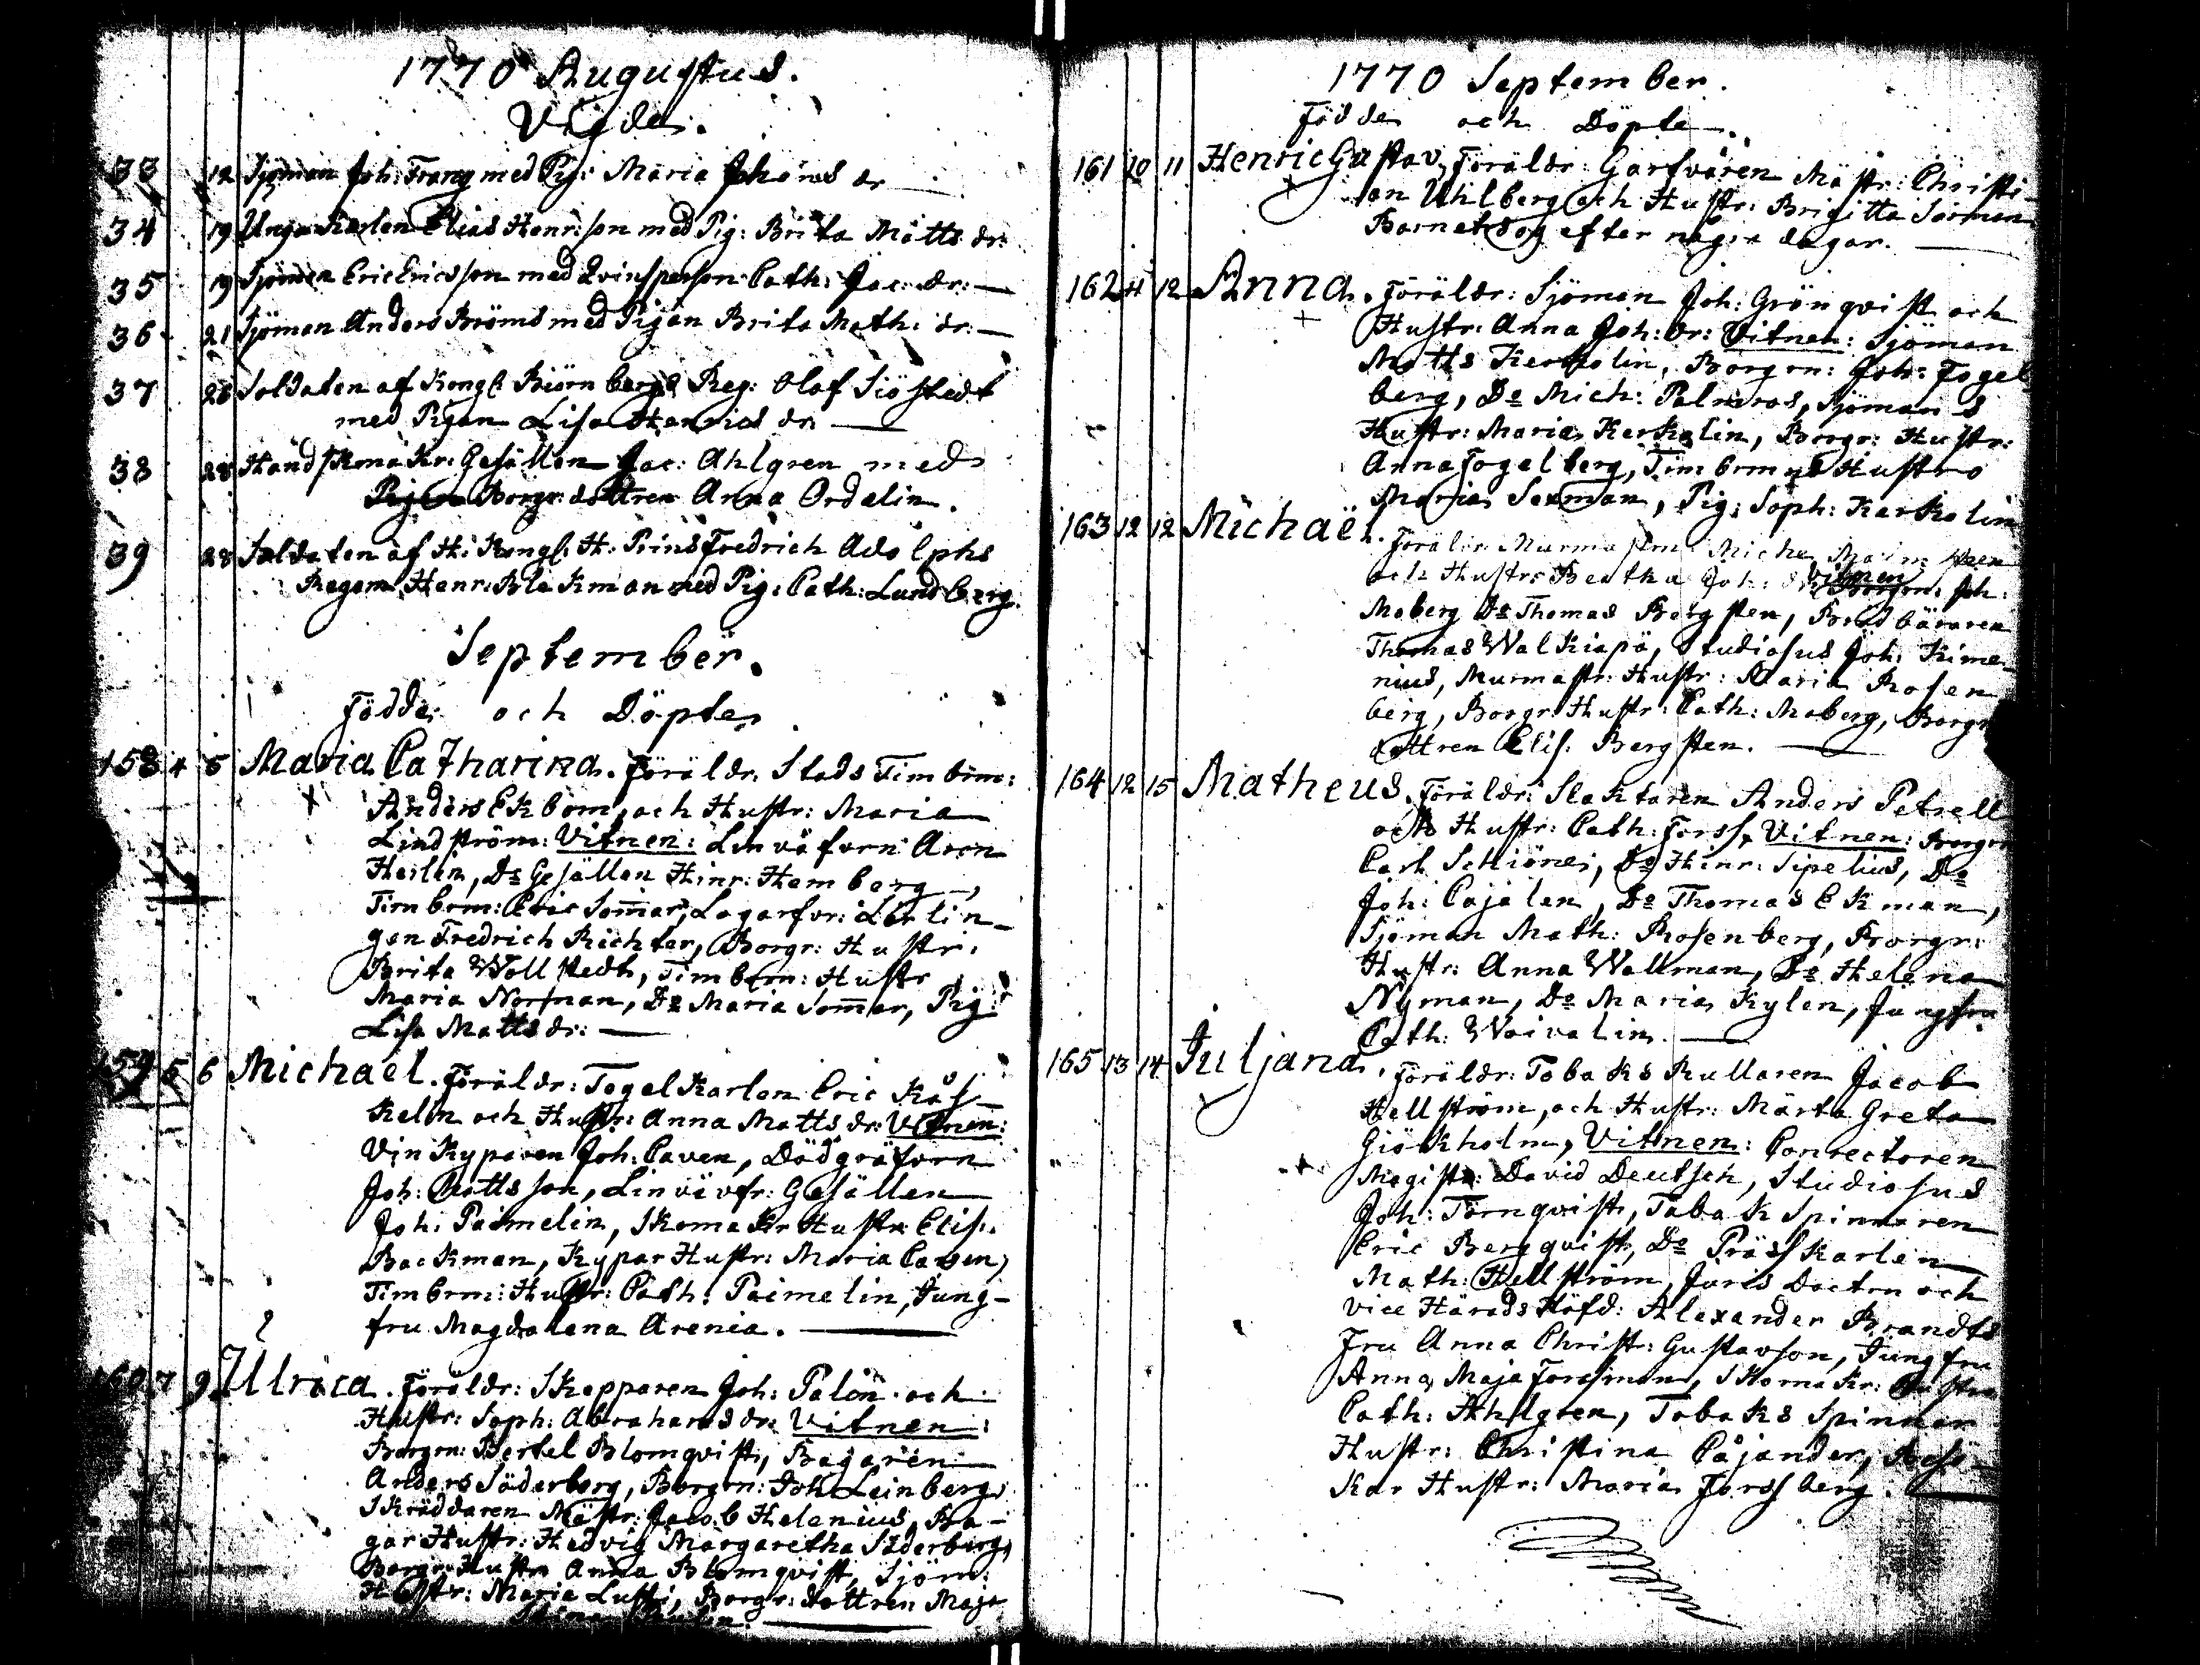 1770 Augustus.
Vigde.
33 12 Sjöman Joh: Trang med Pig: Maria Johans dr
34 19 Unge Karlen Elias Henr:son med Pig: Brita Matts dr:
35 19 Sjöman Eric Ericsson med Qvinsperson Cath: Jac: dr:
36 21 Sjöman Anders Bröms med Pigan Brita Math: dr:
37 28 Soldaten af Kongl Biörneborgs Reg: Olof Siöstedt
med Pigan Lisa Henrics dr
38 28 Handskmakr: Gesällen Jac: Ahlgren med
Pigan Borgr: dottren Anna Ordelin.
39 28 Soldaten af H: Kongl: H: Prins Fredrich Adolphs
Regem Henr: Blekman med Pig: Cath: Lundberg.
September.
Födde och Döpte
158 4 5 Maria Catharina. Föräldr: Stads Timbrm:
Anders Ekbom, och Hustr: Maria
Lindström: Vitnen: Linväfvrn Aron
Herlin, Do Gesällen Hinr: Hemberg,
Timbrm: Eric Som̅ar, Logarfvr: Lärlin-
gen Fredrich Richter, Borgr: Hustr:
Brita Wollstedt, Timbrm: Hustr
Maria Norman, Do Maria Som̅ar, Pig:
Lisa Matts dr:
159 5 6 Michaël. Föräldr: Tegelkarlen Eric Kås-
kelin och Hustr: Anna Matts dr: Vitnen:
Vinkyparen Joh: Caven, Dödgräfvrn
Joh: Mattsson, Linväfvr: Gesällen
Joh: Paimelin, Skomakr Hustr: Elis:
Backman, Kypar Hustr: Maria Caven,
Timbrm: Hustr: Cath: Paimelin, Jung-
fru Magdalena Arenia.
160 7 9 Ulrica. Föräldr: Skepparen Joh: Palén och
Hustr: Soph: Abrahams dr: Vitnen:
Borgrn: Bertel Blomqvist, Bagaren
Anders Söderberg, Borgrn: Joh Leinberg,
Skräddaren Mästr: Jacob Helenius, Ba-
gar Hustr: Hedvig Margaretha Söderberg,
Borgr: Hustr Anna Blomqvist, Sjöm:
Hustr: Maria Lusti, Borgr: dottren Maja
1770 September.
Födde och Döpte.
161 10 11 Henric Gustav, Föräldr: Garfvaren Mästr: Christi-
an Uhlberg och Hustr: Brigitta Sorman
Barnet dog efter några dagar.
162 11 12 Anna. Föräldr: Sjöman Joh: Grönqvist och
Hustr: Anna Joh: dr: Vitnen: Sjöman
Matts Kerkolin, Borgrn: Joh: Fogel
berg, Do Mich: Palmros, Sjömans
Hustr: Maria Kerkolin, Borgr: Hustr:
Anna Fogelberg, Timbrmns Hustro
Maria Saxman, Pig: Soph: Karkolin
163 12 12 Michaël. Föräldr: Murmästrn Michel
och Hustr: Beatha Joh: dr: Vitnen Borgrn: Joh:
Moberg Do Thomas Bergsten, Brödbäraren
Thomas Walkiapä, Studiosus Joh: Kime-
nius, Murmästr: Hustr: Maria Rosen
berg, Borgr: Hustr: Cath: Moberg, Borgr
dottren Elis: Bergsten.
164 12 15 Matheus. Föräldr: Slaktaren Anders Petrell
och Hustr: Cath: Forss, Vitnen: Borgrn
Carl Schiöner, Do Hinr: Sipelius, Do
Joh: Cajalen, Do Thomas Ekman,
Sjöman Math: Rosenberg, Borgr:
Hustr: Anna Wallman, Do Helena
Nyman, Do Maria Kylen, Jungfru
Cath: Woivalin.
165 13 14 Juljana. Föräldr: Tobaks Rullaren Jacob
Hellström, och Hustr: Märta Greta
Giökholm, Vitnen: Conrectoren
Magistr: David Deutsch, Studiosus
Joh: Törnqvist, Tabak Spinnaren
Eric Bergqvist, Do Prässkarlen
Math: Hellström, Juris Doctrn och
vice Härads Höfd: Alexander Brandts
Fru Anna Christ: Gustavson, Jungfru
Anna Maja Forssman, Skomakr: Hustru
Cath: Ahlgren, Tobaks Spinnar
Hustr: Christina Cajander, Besö-
kar Hustr: Maria Forssberg.